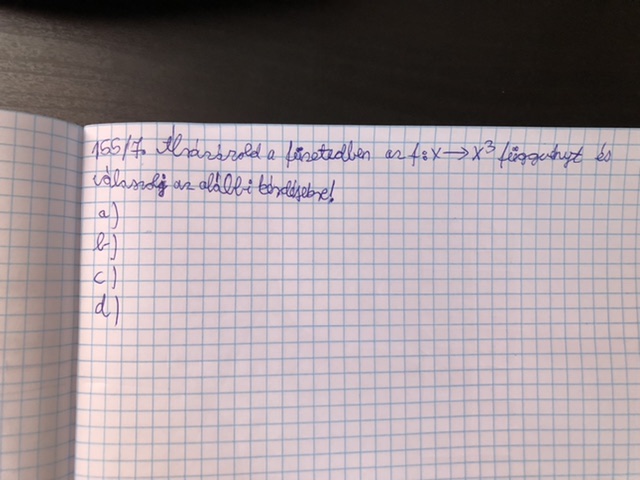 155/7. Ábrázold a füzetedben az f: x → x³ függvényt és
válaszolj az alábbi kérdésekre!
a)
b)
c)
d)